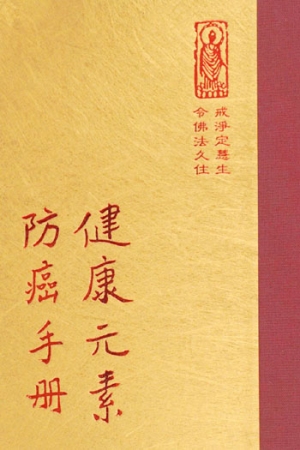 戒淨定慧生
令佛法久住
健康元素
防癌手册